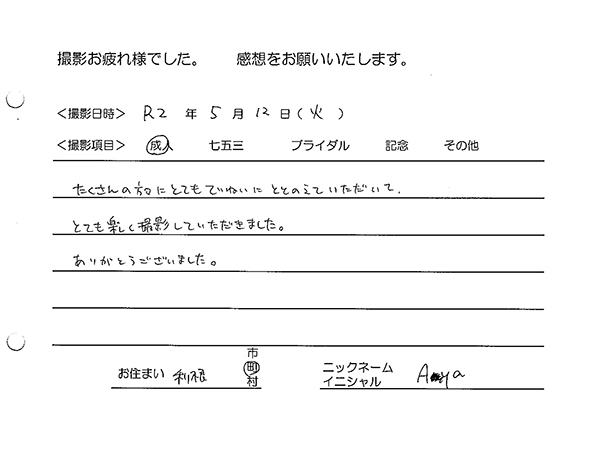 撮影お疲れ様でした。 感想をお願いいたします。
<撮影日時> R2 年 5 月 12 日(火)
<撮影項目> 成人 七五三 ブライダル 記念 その他
たくさんの方々にとてもていねいにととのえていただいて、
とても楽しく撮影していただきました。
ありがとうございました。
お住まい 利根 市 町 村
ニックネーム
イニシャル